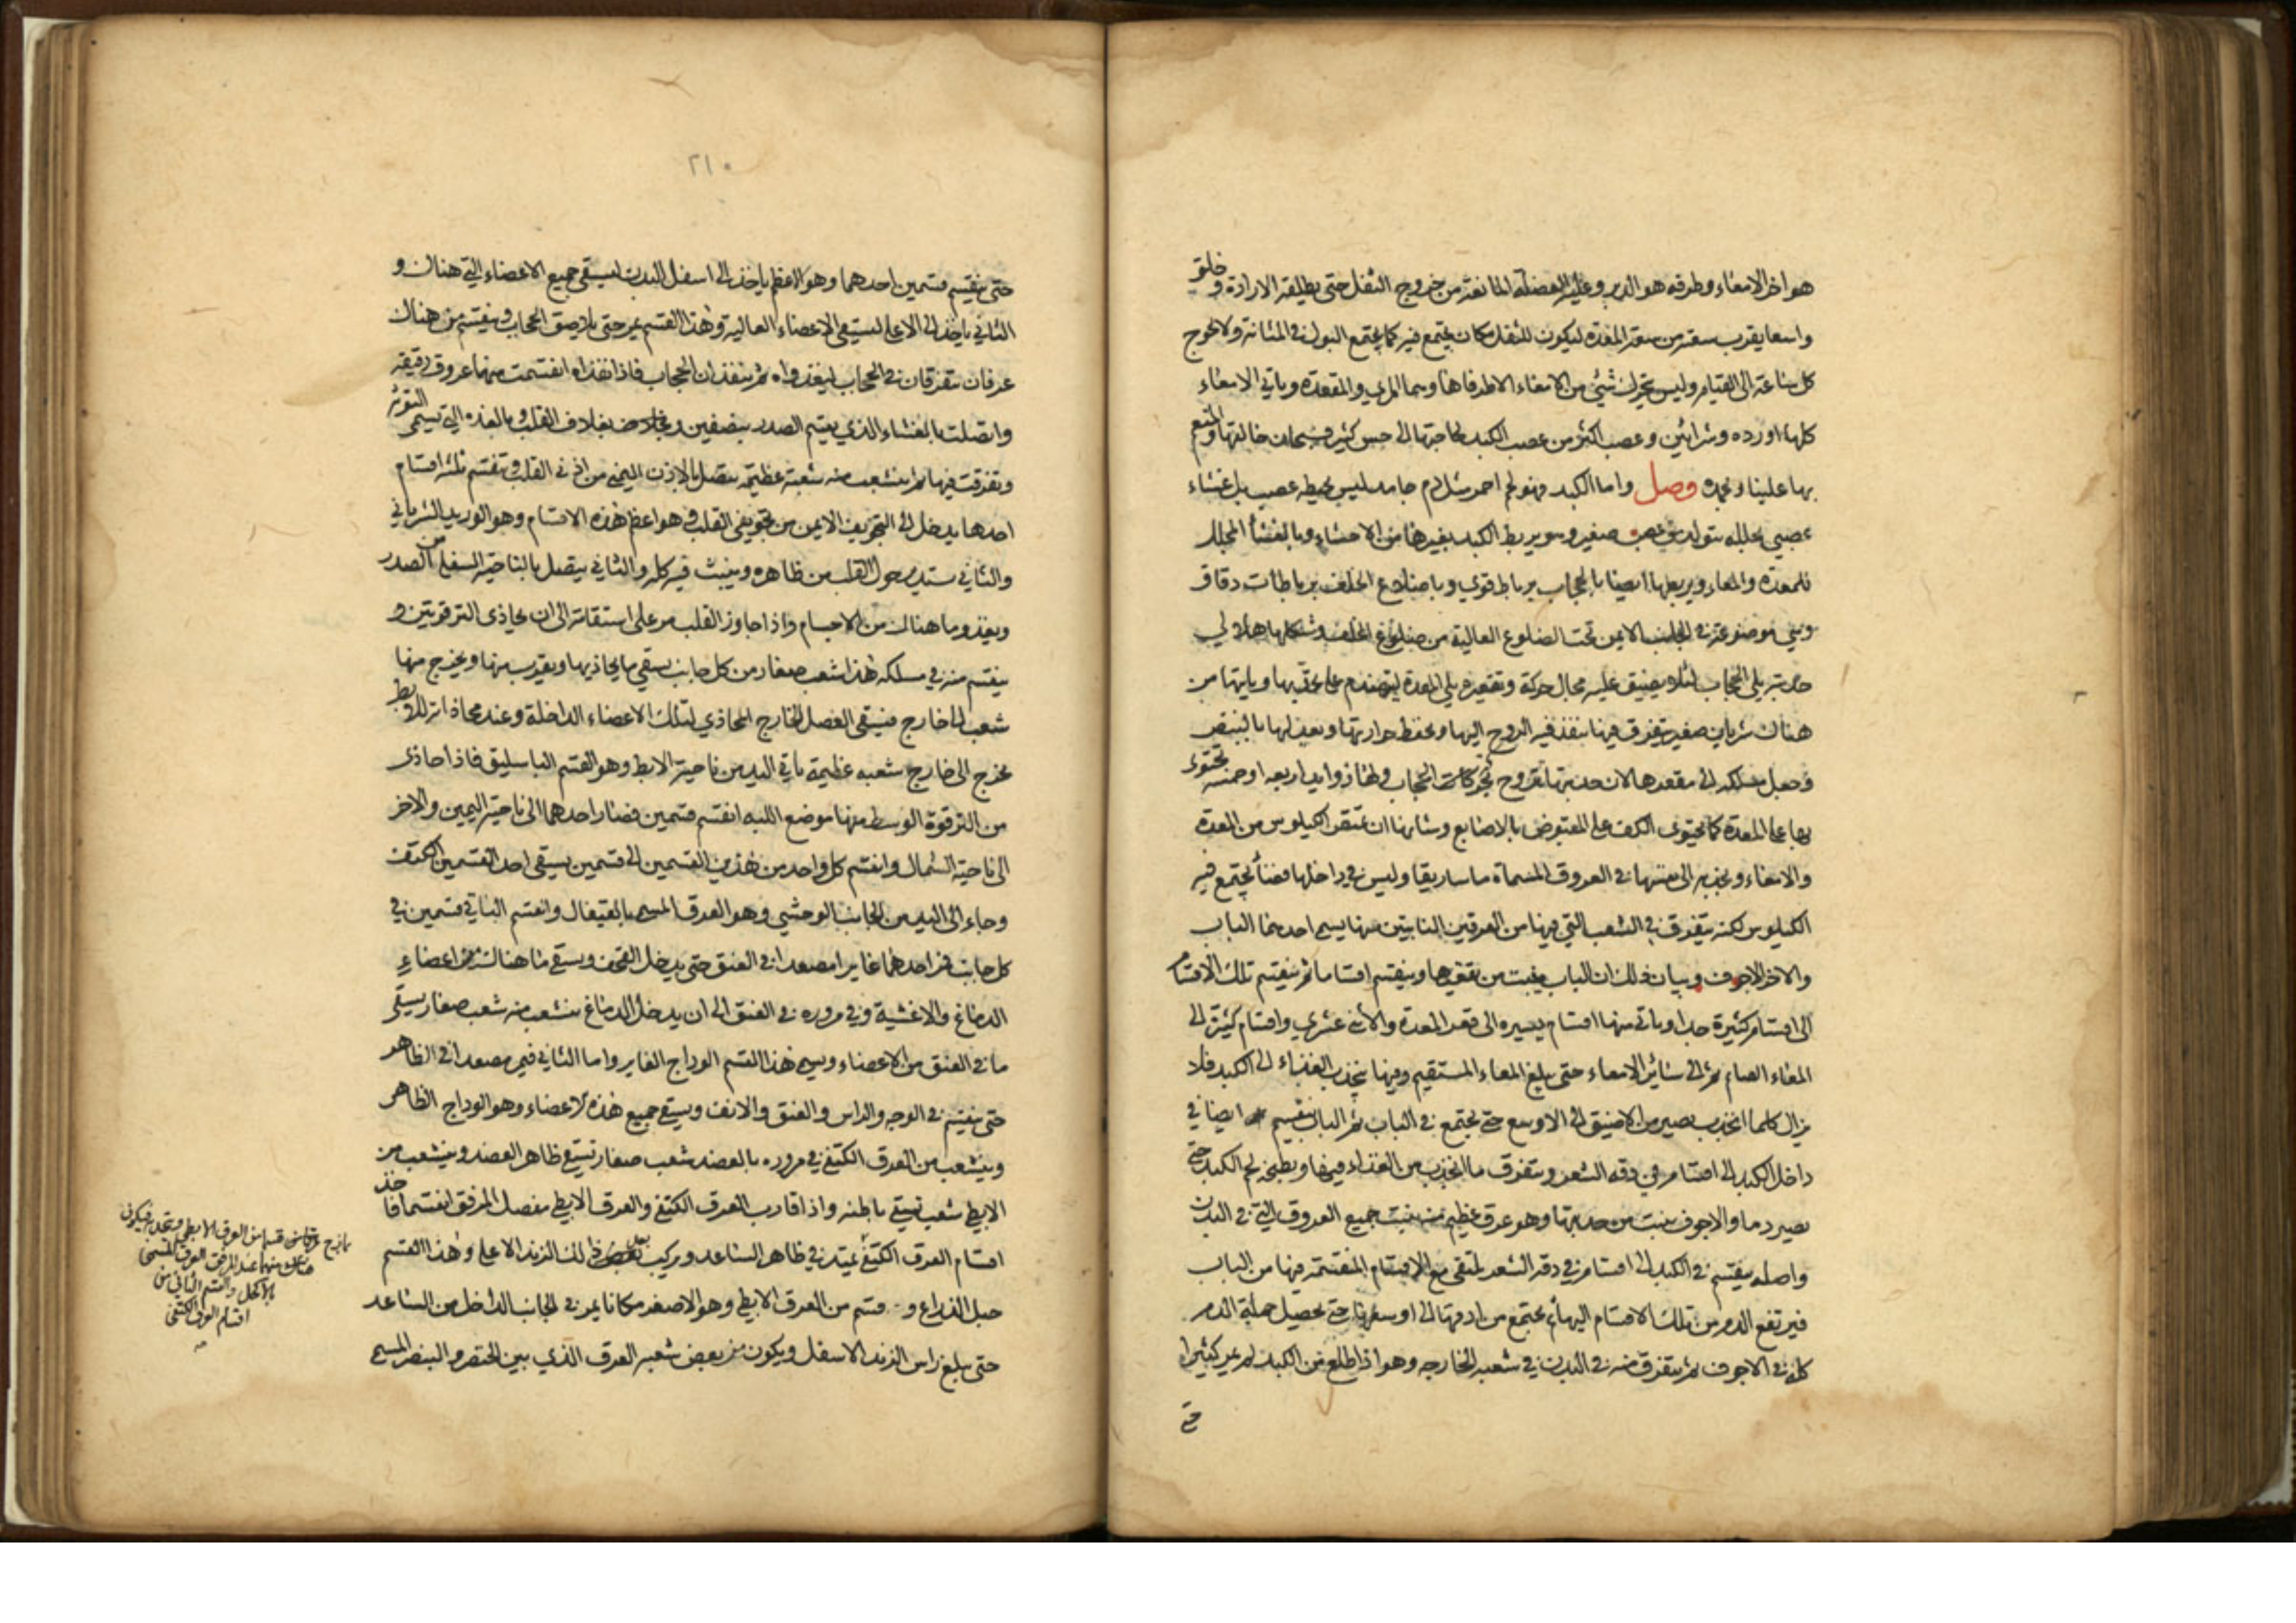 هو اخر الامعاء وطرفه هو الدبر وعليه العضلة المانعة من خروج الثفل حتى يطلقه الارادة و خلق
واسعا يقرب سعته من سعة المعدة ليكون للثفل مكان يجتمع فيه كما يجتمع البول في المثانة ولا يحوج
كل ساعة الى القيام وليس يتحرك شيئ من الامعاء الا طرفاها وهما المري والمقعدة وياتي الامعاء
كلها اورده وشرائين وعصب اكثر من عصب الكبد لحاجتها الى حس كثير فسبحان خالقها والمنعم
بها علينا وبحمده فصل واما الكبد فهو لحم احمر مثل دم جامد ليس يحيطه عصب بل غشاء
عصبي يجلله يتولد من عصب صغير وهو يربط الكبد بغيرها من الاحشاء وبالغشأ المجلل
للمعدة والمعاء ويربطها ايضا بالحجاب برباط قوي وباضلاع الخلف برباطات دقاق
وهي موضوعة في الجانب الايمن تحت الضلوع العالية من ضلوع الخلف وشكلها هلالي
حدبته يلي الحجاب لئلا يضيق عليه مجال حركة وتقعيره يلي المعدة ليتهندم على تحدبها وياتيها من
هناك شريان صغير يتفرق فيها ينفذ فيه الروح اليها ويحفظ حرارتها ويعدلها بالنبض
وجعل مسلكه الى مقعرها لان حدبتها تتروح بحركات الحجاب ولها زوايد اربعه او خمسه تحتوى
بها على المعدة كما يحتوى الكف على المقبوض بالاصابع وشانها ان تمتص الكيلوس من المعدة
والامعاء وتجذبه الى نفسها في العروق المسماة ماساريقا وليس في داخلها فضأ يجتمع فيه
الكيلوس لكنه يتفرق في الشعب التي فيها من العرقين النابتين منها يسمى احدهما الباب
والاخر الاجوف وبيان ذلك ان الباب ينبت من تقعيرها وينقسم اقساما ثم ينقسم تلك الاقسام
الى اقسام كثيرة جدا وياتى منها اقسام يسيره الى قعر المعدة والاثنى عشري واقسام كثيرة الى
المعاء الصام ثم الى سائر الامعاء حتى يبلغ المعاء المستقيم وفيها ينجذب الغذاء الى الكبد فلا
يزال كلما انجذب يصير من الاضيق الى الاوسع حتى يجتمع في الباب ثم الباب ينقسم ايضا في
داخل الكبد الى اقسام في دقه الشعر ويتفرق ما انجذب من الغذاء فيها ويطبخه لحم الكبد حتى
يصير دما والاجوف ينبت من حدبتها وهو عرق عظيم منه ينبت جميع العروق التي في البدن
واصله ينقسم في الكبد الى اقسام في دقة الشعر يلتقى مع الاقسام المنقسمة فيها من الباب
فيرتفع الدم من تلك الاقسام اليها ثم يجتمع من ادقها الى اوسعها حتى يحصل جملة الدم
كله في الاجوف ثم يتفرق منه في البدن في شعبه الخارجه وهو اذا طلع من الكبد لم يمر كثيرا
حتى
٢١٠
حتى ينقسم قسمين احدهما وهو الاعظم ياخذ الى اسفل البدن ليسقى جميع الاعضاء التي هناك و
الثاني ياخذ الى الاعلى ليسقى الاعضاء العالية وهذا القسم يمر حتى يلاصق الحجاب وينقسم منه هناك
عرقان يتفرقان في الحجاب ليغذواه ثم ينفذان الحجاب فاذا نفذاه انقسمت منهما عروق دقيقة
واتصلت بالغشاء الذي يقسم الصدر بنصفين وبغلاف القلب وبالغده التي تسمى التوثة
وتفرقت فيها ثم ينشعب منه شعبة عظيمة يتصل بالاذن اليمنى من اذني القلب وتنقسم ثلثه اقسام
احدها يدخل الى التجويف الايمن من تجويفي القلب وهو اعظم هذه الاقسام وهو الوريد الشرياني
والثاني يستدير حول القلب من ظاهره وينبث فيه كله والثاني يتصل بالناحية السفلى من الصدر
ويغذو ما هناك من الاجسام واذا جاوز القلب مر على استقامة الى ان يحاذى الترقوتين و
ينقسم منه في مسلكه هذا شعب صغار من كل جانب يسقي ما يحاذيها ويقرب منها ويخرج منها
شعب الى خارج فيسقى العضل الخارج المحاذي لتلك الاعضاء الداخلة وعند محاذاته للابط
يخرج الى خارج شعبه عظيمة ياتي اليد من ناحية الابط وهو القسم الباسليق فاذا حاذى
من الترقوة الوسط منها موضع اللبه انقسم قسمين فصار احدهما الى ناحية اليمين والاخر
الى ناحية الشمال وانقسم كل واحد من هذين القسمين الى قسمين يسقى احد القسمين الكتف
وجاء الى اليد من الجانب الوحشي وهو العرق المسمى بالقيفال وانقسم الثاني قسمين في
كل جانب فمر احدهما غايرا مصعدا في العنق حتى يدخل القحف ويسقي ما هناك من اعضاء
الدماغ والاغشية وفي مروره في العنق الى ان يدخل الدماغ ينشعب منه شعب صغار يسقى
ما في العنق من الاعضاء ويسمى هذا القسم الوداج الغاير واما الثاني فيمر مصعدا في الظاهر
حتى ينقسم في الوجه والراس والعنق والانف ويسقي جميع هذه الاعضاء وهو الوداج الظاهر
وينشعب من العرق الكتفي في مروره بالعضد شعب صغار تسقي ظاهر العضد وينشعب من
الابطي شعب تسقي باطنه واذا قارب العرق الكتفي والعرق الابطي مفصل المرفق انقسما فاخذ
اقسام العرق الكتفي يمتد في ظاهر الساعد ويركب الزند الاعلى وهذا القسم
حبل الذراع و قسم من العرق الابطي وهو الاصغر مكانا يمر في الجانب الداخل من الساعد
حتى يبلغ راس الزند الاسفل ويكون من بعض شعبه العرق الذي بين الخنصر والبنصر المسمى
قسما من العرق الابطي ويتحد فيكون
منهما عند المرفق العرق المسمى
بالاكحل والقسم الثاني من
اقسام العرق الكتفي